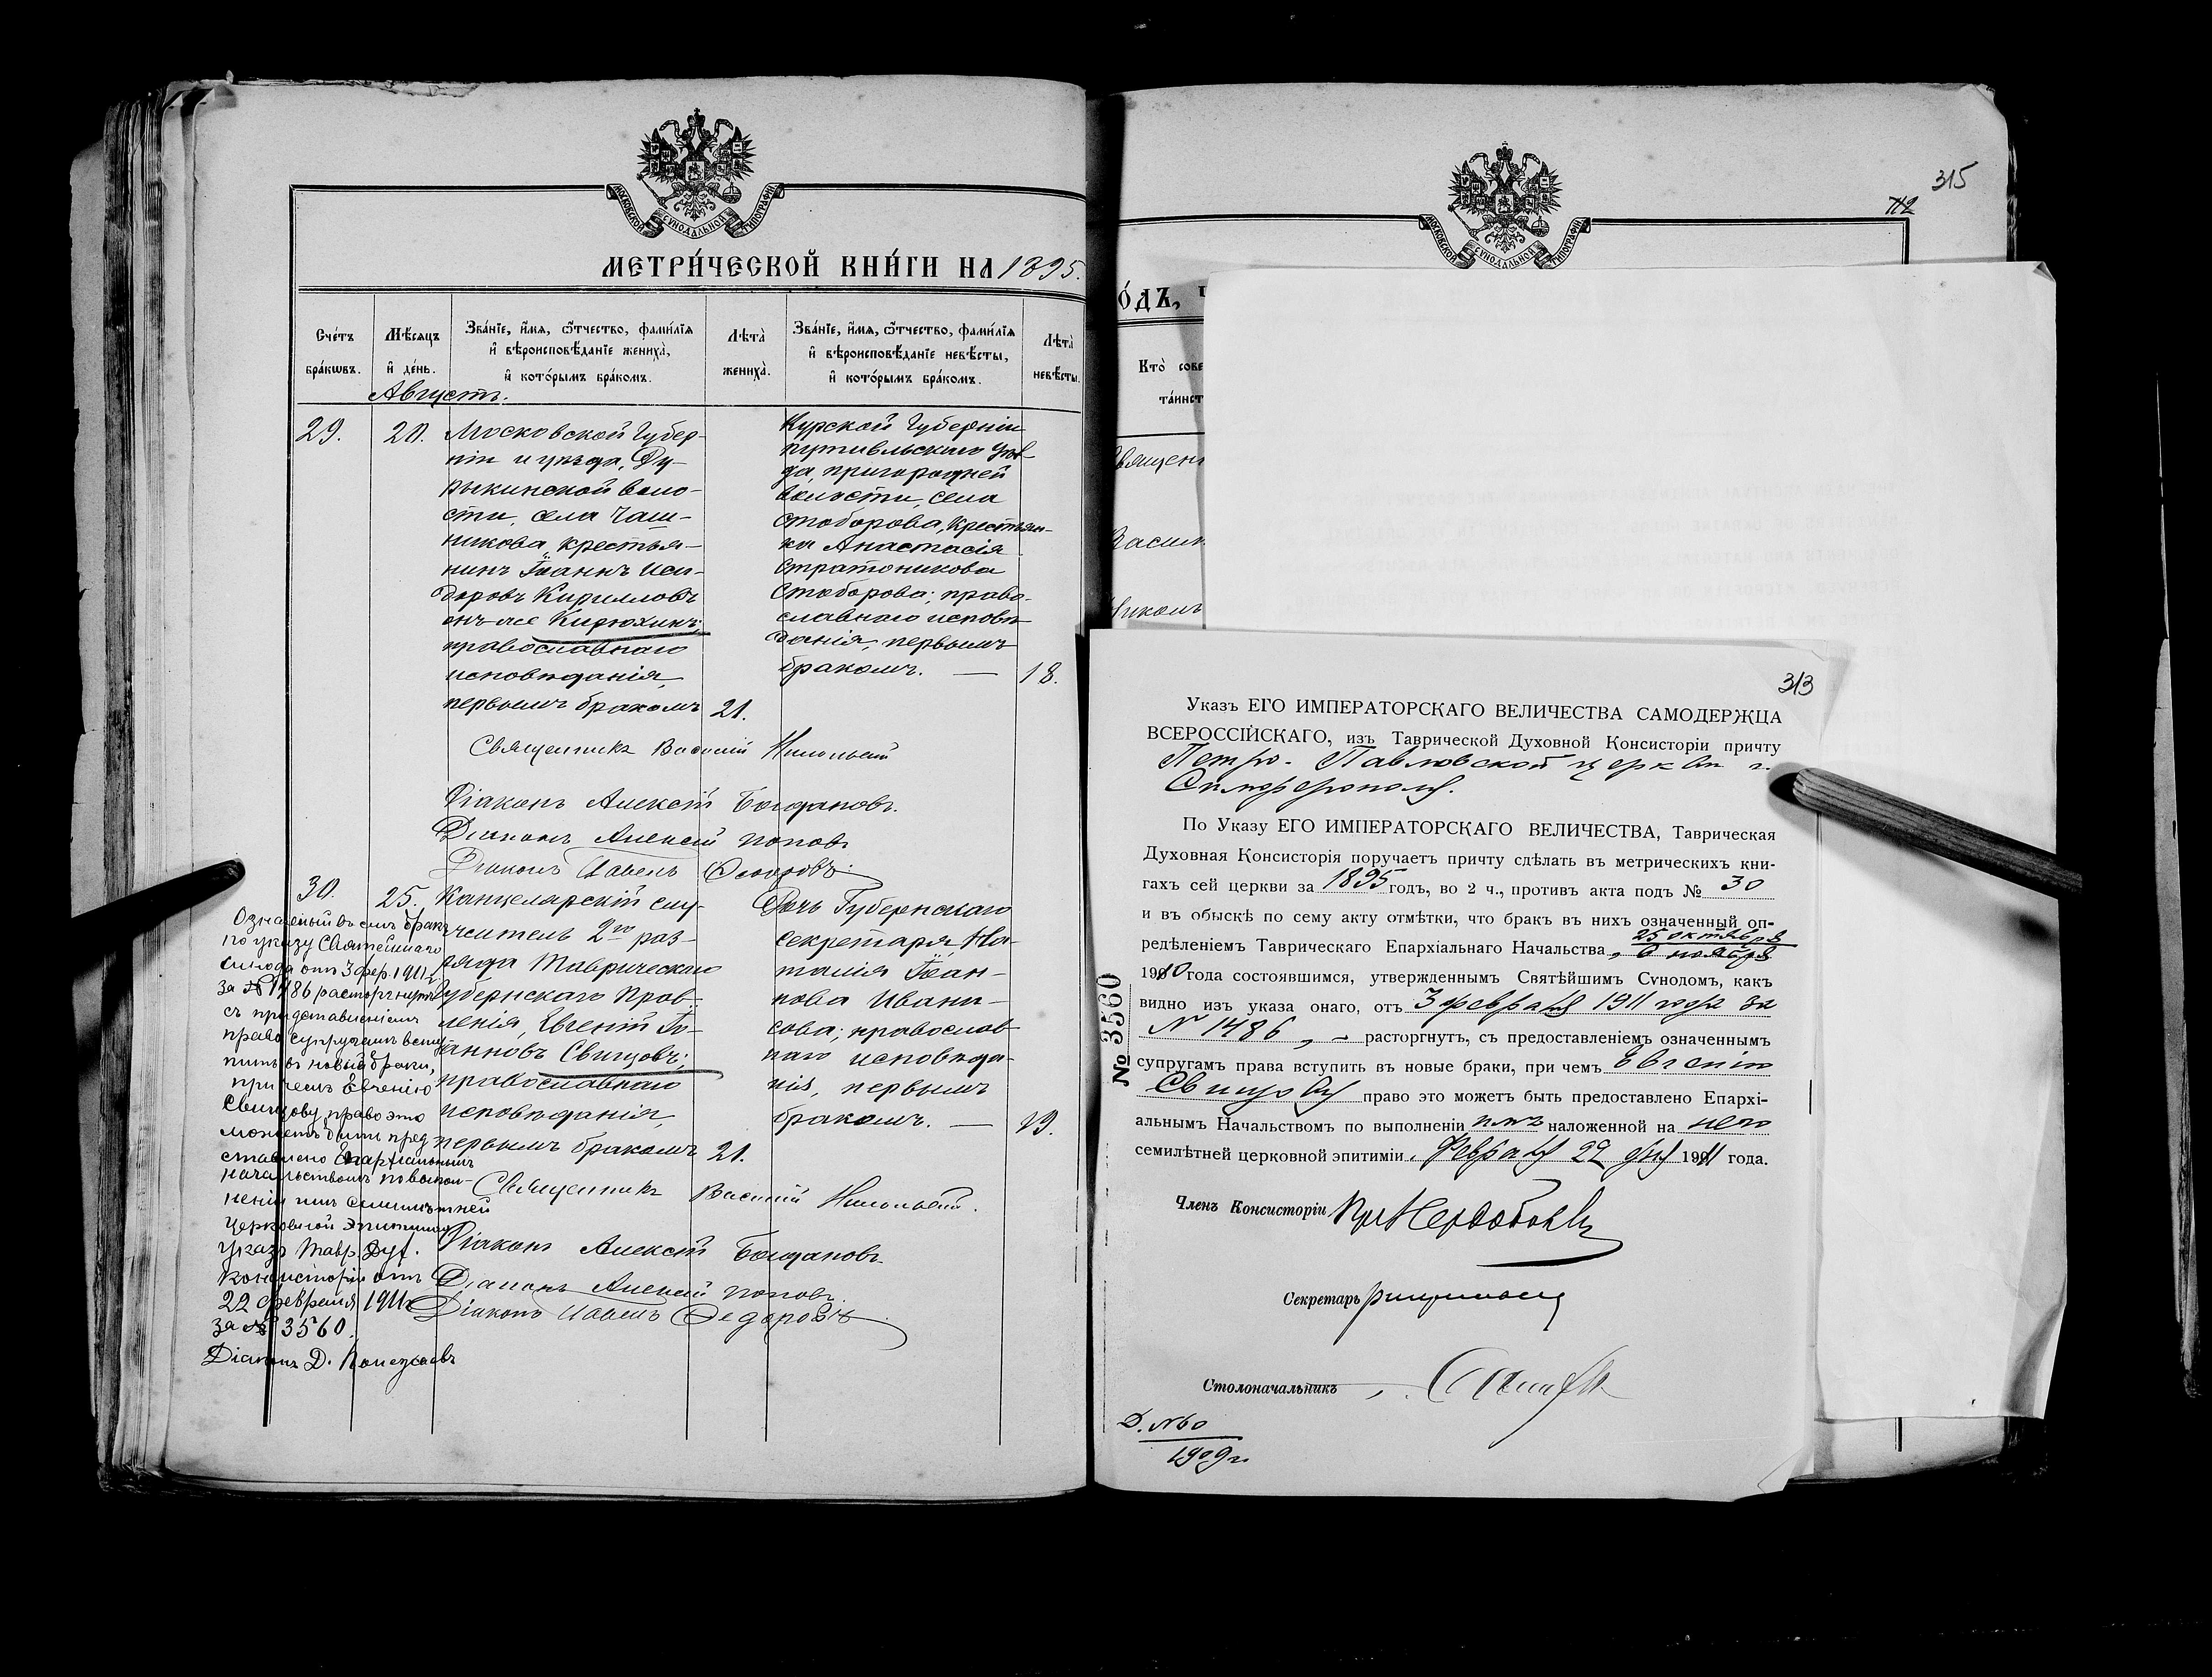 МОСКОВСКОЙ СѴНОДАЛЬНОЙ ТИПОГРАФІИ
МЕТРИ́ЧЕСКОЙ КНИ́ГИ НА 1895.
Сче́тъ
бра́кωвъ.
Мѣ́сяцъ
и҆ де́нь.
Зва́нїе, и҆́мя, ѻ҆́тчество, фами́лїя
и҆ вѣроисповѣ́данїе жениха̀,
и҆ кото́рымъ бра́комъ.
Лѣта̀
жениха̀.
Зва́нїе, и҆́мя, ѻ҆́тчество, фами́лїя
и҆ вѣроисповѣ́данїе невѣ́сты,
и҆ кото́рымъ бра́комъ.
Лѣта̀
невѣ́сты.
Августъ.
29.
20.
Московской Губер-
ніи и уѣзда, Ду-
рыкинской воло-
сти, села Чаш-
никова, крестья-
нинъ Іоаннъ Иси-
доровъ Кирилловъ
онъ же Кирюхинъ;
православнаго
исповѣданія,
первымъ бракомъ
21.
Курской Губерніи
путивльскаго уѣз-
да, пригородней
волости, села
Стоборова, крестьян-
ка Анастасія
Стратоникова
Стоборова; право-
славнаго исповѣ-
данія, первымъ
бракомъ. —
18.
Священникъ Василій Никольскій
Діаконъ Алексій Богдановъ.
Діаконъ Алексій Поповъ
Діаконъ Павелъ Ѳедоровъ.
30.
25.
Канцелярскій слу-
житель 2го раз-
ряда Таврическаго
Губернскаго Прав-
ленія, Евгеній Іо-
анновъ Свищовъ;
православнаго
исповѣданія,
первымъ бракомъ
21.
Дочь Губернскаго
секретаря, На-
талія Іоан-
нова Ивани-
сова; православ-
наго исповѣда-
нія, первымъ
бракомъ. —
19.
Священникъ Василій Никольскій.
Діаконъ Алексій Богдановъ
Діаконъ Алексій Поповъ.
Діаконъ Павелъ Ѳедоровъ
Означеный въ семъ бракъ
по указу Святѣйшаго
Синода отъ 3 фев. 1911 г.
за № 1486 расторгнутъ
съ представленіемъ
право супругамъ всту-
пить въ новый браки,
при чемъ Евгенію
Свищову право это
можетъ быть пред
ставлено Епархіальнымъ
начальствомъ по выпол-
неніи имъ семилѣтней
церковной эпитиміи
указъ Тавр. Дух.
Консисторіи отъ
22 февраля 1911 г.
за № 3560.
Діаконъ Д.
МОСКОВСКОЙ СѴНОДАЛЬНОЙ ТИПОГРАФІИ
315
112
О́ДЪ,
Кто̀ сове
та́инст
Священ
Васил
Никол
313
Указъ ЕГО ИМПЕРАТОРСКАГО ВЕЛИЧЕСТВА САМОДЕРЖЦА
ВСЕРОССІЙСКАГО, изъ Таврической Духовной Консисторіи причту
Петро-Павловской церкви г.
Симферополя.
По Указу ЕГО ИМПЕРАТОРСКАГО ВЕЛИЧЕСТВА, Таврическая
Духовная Консисторія поручаетъ причту сдѣлать въ метрическихъ кни-
гахъ сей церкви за 1895 годъ, во 2 ч., противъ акта подъ № 30
и въ обыскѣ по сему акту отмѣтки, что бракъ въ нихъ означенный оп-
редѣленіемъ Таврическаго Епархіальнаго Начальства, 25 октября
6 ноября
1910 года состоявшимся, утвержденнымъ Святѣйшимъ Сѵнодомъ, какъ
видно изъ указа онаго, отъ 3 февраля 1911 года за
№ 1486, — расторгнутъ, съ предоставленіемъ означеннымъ
супругамъ права вступить въ новые браки, при чемъ Евгенію
Свищову право это можетъ быть предоставлено Епархі-
альнымъ Начальствомъ по выполненіи имъ наложенной на него
семилѣтней церковной эпитиміи. Февраля 22 дня 1911 года.
№ 3560
Членъ Консисторіи
Секретарь
Столоначальникъ
Д. № 60
1909 г.